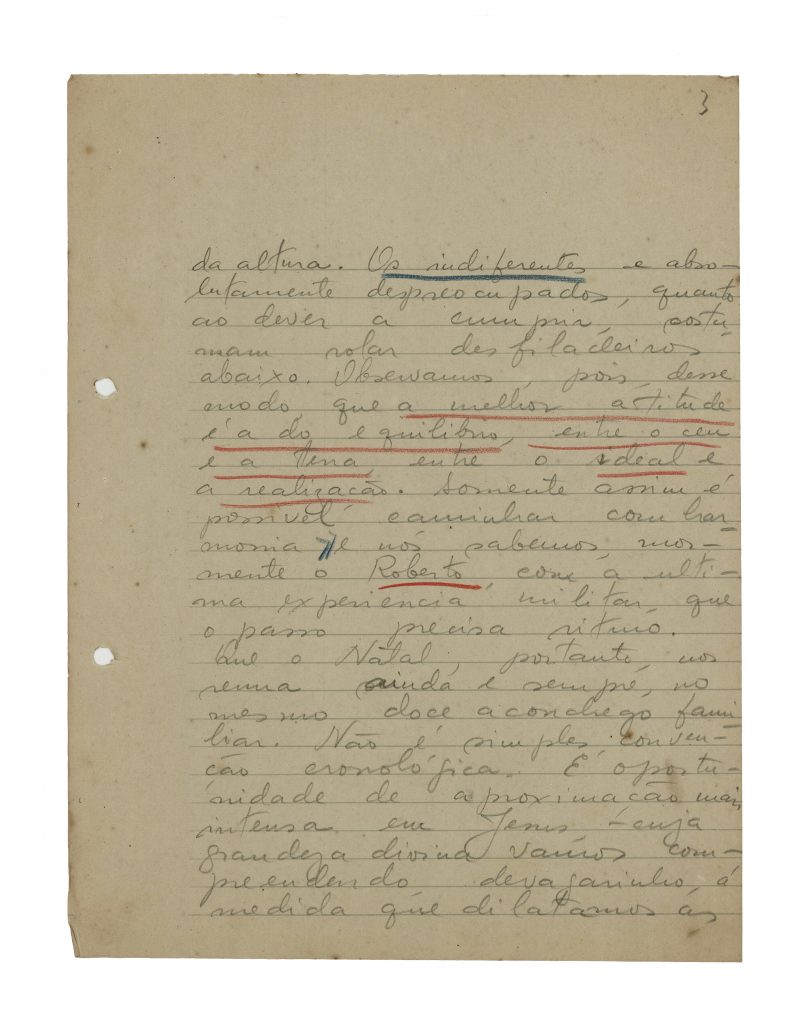 3
da altura. Os indiferentes e abso-
lutamente despreocupados, quanto
ao dever a cumprir, costu-
mam rolar desfiladeiros
abaixo. Observamos, pois, desse
modo, que a melhor atitude
é a do equilibrio, entre o ceu
e a terra, entre o ideal e
a realização. Somente assim é
possivel caminhar com har
monia e nós sabemos, mor-
mente o Roberto, com a ulti-
ma experiencia militar, que
o passo precisa ritmo.
Que o Natal, portanto, nos
reuna ainda e sempre, no
mesmo doce aconchego fami
liar. Não é simples conven-
ção cronológica. É oportu-
nidade de aproximação mais
intensa em Jesus - cuja
grandeza divina vamos com-
preendendo devagarinho, á
medida que dilatamos as